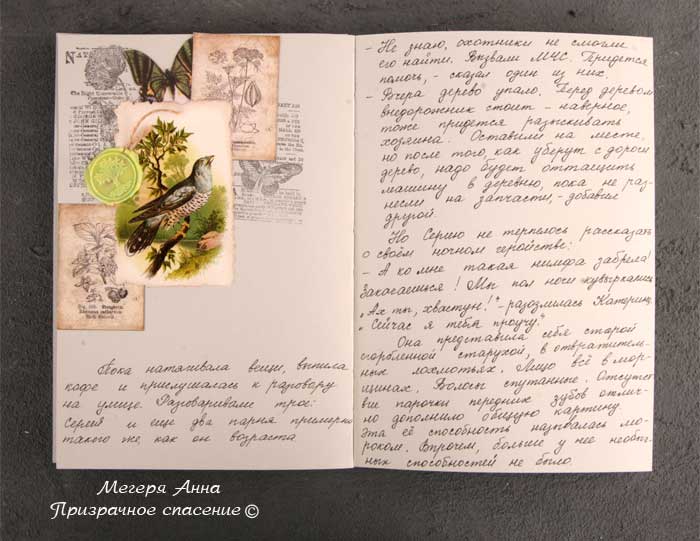 Пока натягивала вещи, выпила
кофе и прислушалась к разговору
на улице. Разговаривали трое:
Сергей и ещё два парня примерно
такого же, как он возраста
- Не знаю, охотники не смогли
его найти. Вызвали МЧС. Придется
помочь, - сказал один из них.
- Вчера дерево упало. Перед деревом
внедорожник стоит - наверное,
тоже придется разыскивать
хозяина. Оставили на месте,
но после того, как уберут с дороги
дерево, надо будет оттащить
машину в деревню, пока не раз-
несли на запчасти, - добавил
другой.
Но Сергею не терпелось рассказать
о своём ночном геройстве:
- А ко мне такая нимфа забрела!
Закачаешься! Мы пол ночи кувыркались
"Ах ты, хвастун!" - разозлилась Катерина.
"Сейчас я тебя проучу."
Она представила себя старой
сгорбленной старухой, в отвратитель-
ных лохмотьях. Лицо всё в мор-
щинах. Волосы спутанные. Отсутст-
вие парочки передних зубов отлич-
но дополнило общую картину.
Эта её способность называлась мо-
роком. Впрочем, больше у неё необыч-
ных способностей не было.
Мегеря Анна
Призрачное спасение ©